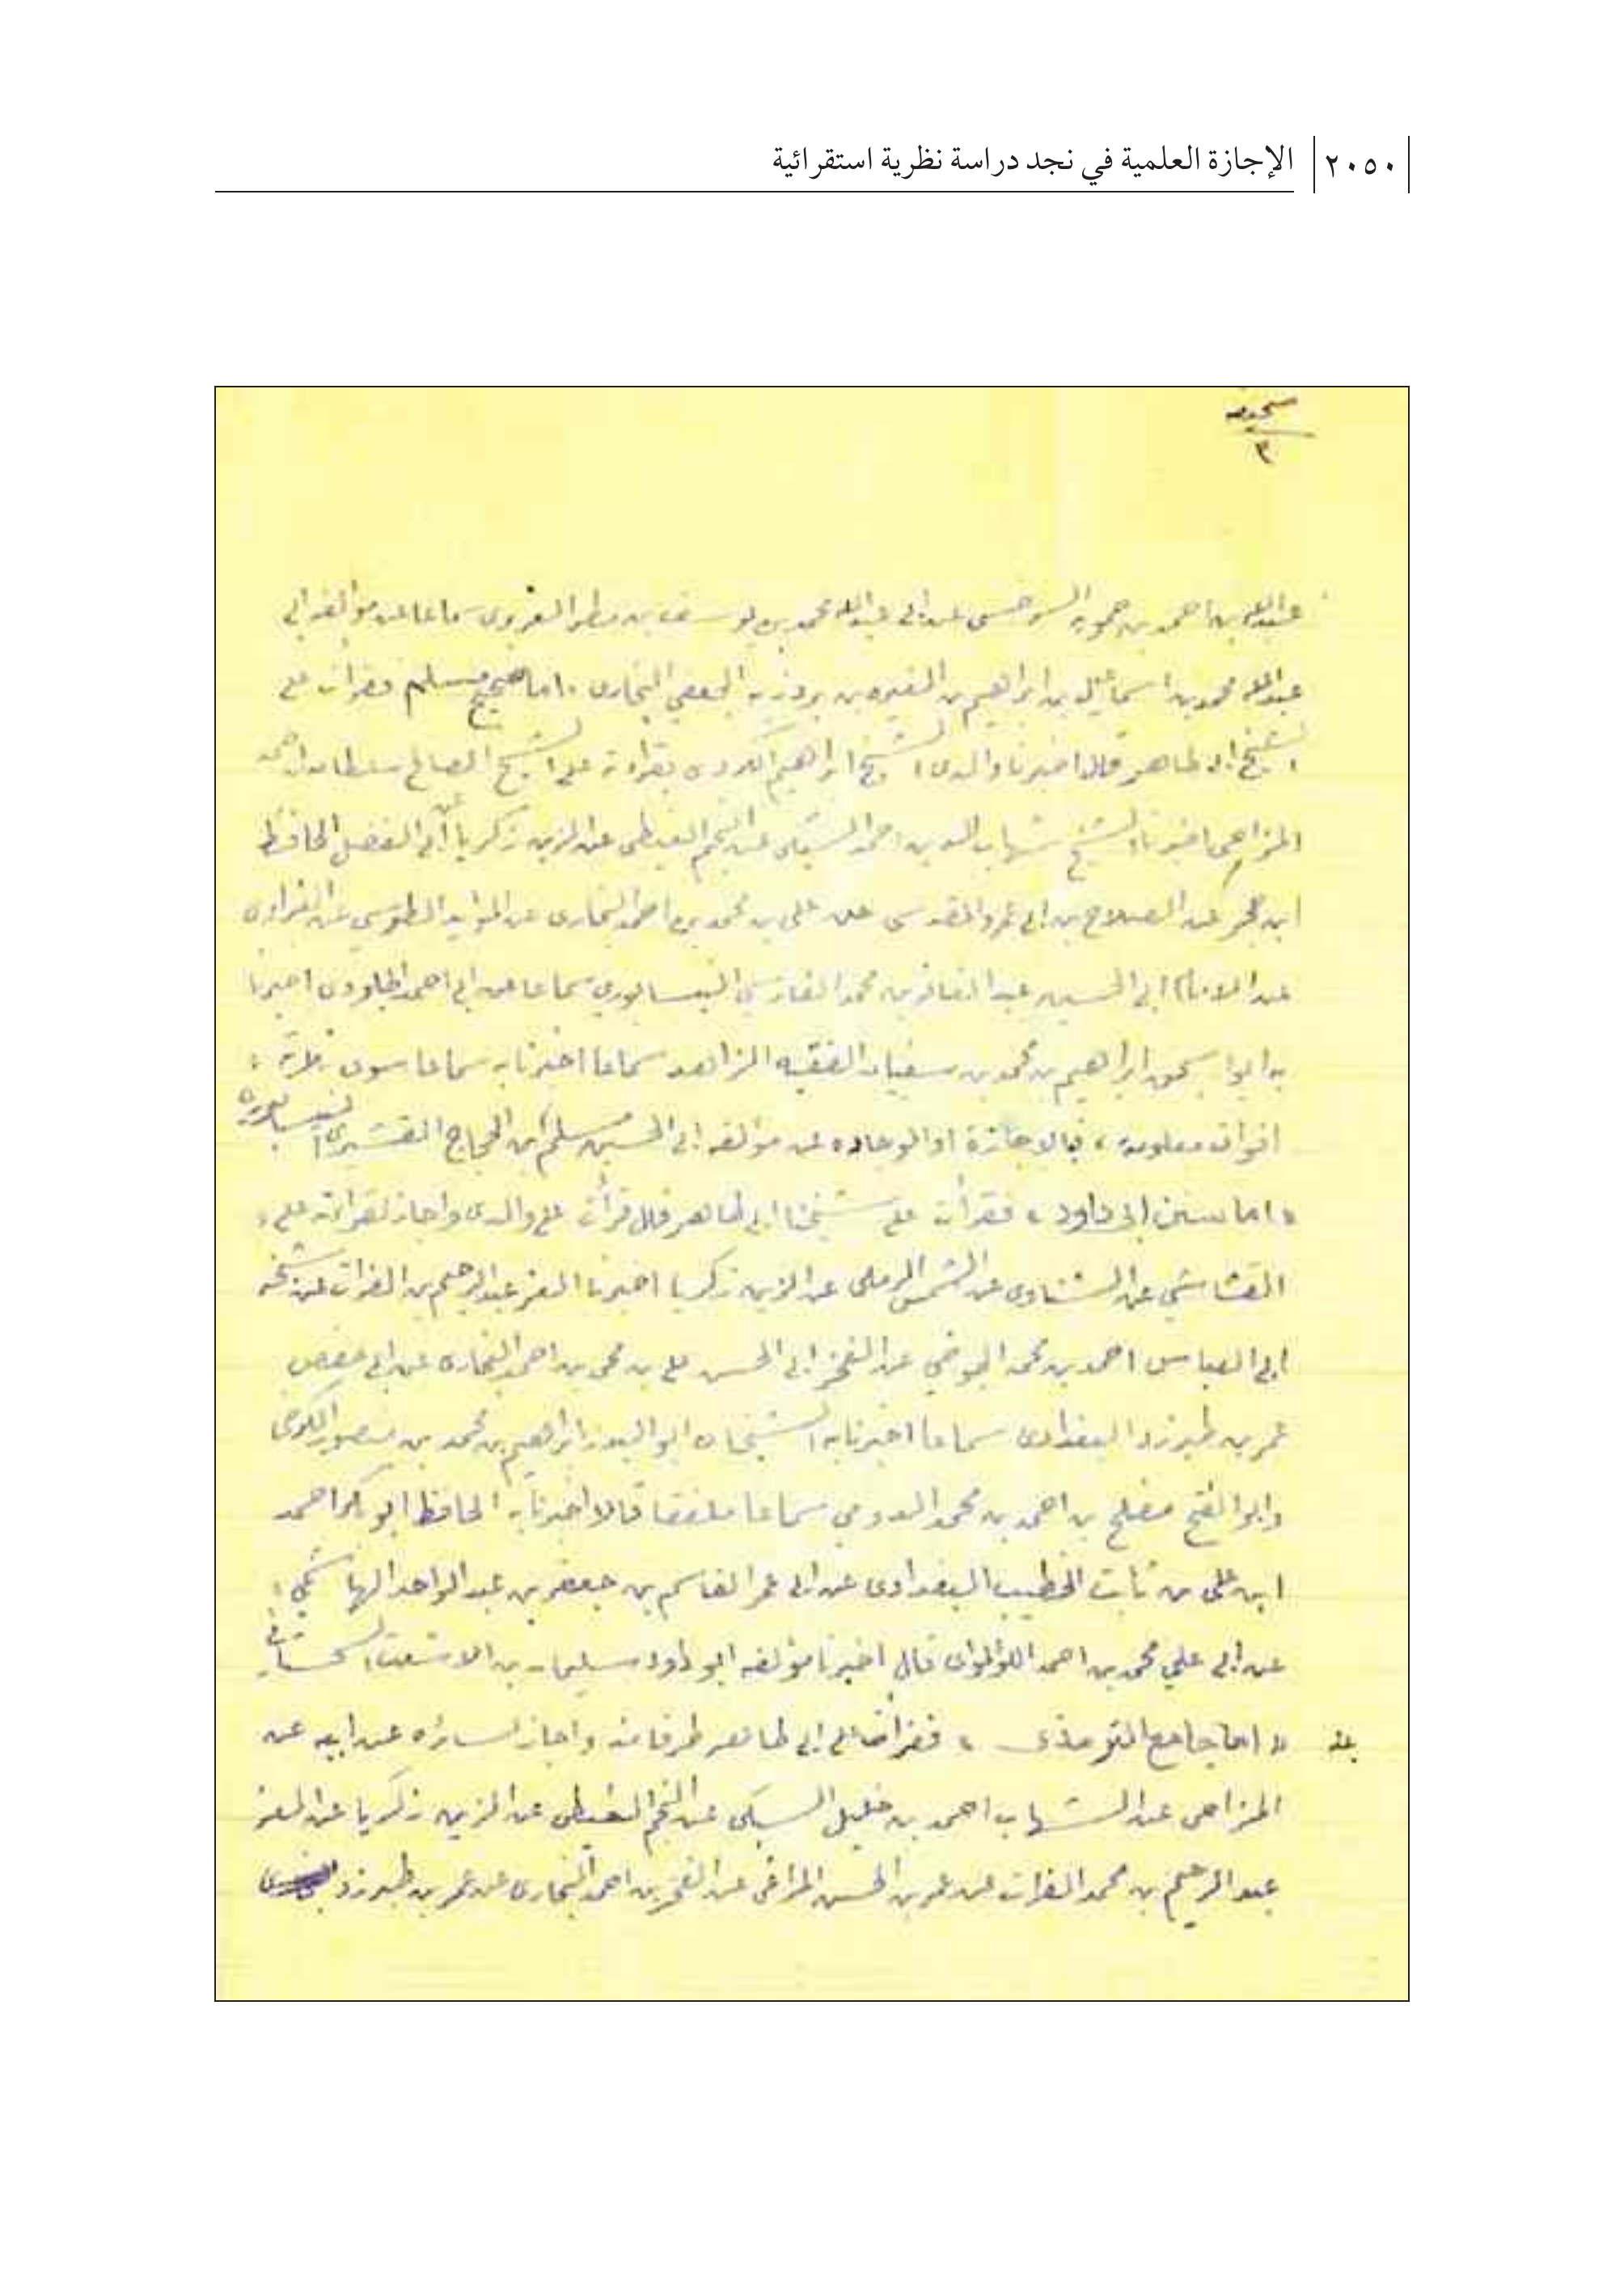 ٢٠٥٠ الإجازة العلمية في نجد دراسة نظرية استقرائية
صحيفة
٣
عبدالله بن احمد بن حمويه السرخسي عن ابي عبدالله محمد بن يوسف بن مطر الفربري سماعا عن مؤلفه ابي
عبدالله محمد بن اسماعيل بن ابراهيم بن المغيره بن بردزبه الجعفي البخاري واما صحيح مسلم فقرأت على
الشيخ ابي طاهر قال اخبرنا والدي الشيخ ابراهيم الكردي بقراءته على الشيخ الصالح سلطان بن احمد
المزاحي اخبرنا الشيخ شهاب الدين احمد السبكي عن النجم الغيطي عن الزين زكريا عن أبي الفضل الحافظ
ابن حجر عن الصلاح بن ابي عمر المقدسي عن علي بن محمد بن احمد البخاري عن المؤيد الطوسي عن الفراوي
عن الامام ابي الحسين عبد الغافر بن محمد الفارسي النيسابوري سماعا عن ابي احمد الجلودي اخبرنا
به ابو اسحق ابراهيم بن محمد بن سفيان الفقيه الزاهد سماعا اخبرنا به سماعا سوى ثلاثة
افوات معلومة ، فبالاجازة او الوجاده عن مؤلفه ابي الحسين مسلم ابن الحجاج القشيري النيسابوري
« اما سنن ابي داود » فقرأت على شيخنا ابي طاهر قال قرأت على والدي واجاز لقرائته على
القشاشي عن الشناوي عن الشمس الرملي عن الزين زكريا اخبرنا العز عبدالرحيم بن الفرات عن شيخه
ابي العباس احمد بن محمد الجوخي عن الفخر ابي الحسن علي بن محمد بن احمد البخاري عن ابي حفص
عمر بن طبرزد البغدادي سماعا اخبرنا به الشيخان ابو البدر ابراهيم بن محمد بن منصور الكرخي
وابو الفتح مفلح بن احمد بن محمد الدومي سماعا ملفقا قالا اخبرنا به الحافظ ابو بكر احمد
ابن علي بن ثابت الخطيب البغدادي عن ابي عمر القاسم بن جعفر بن عبد الواحد الهاشمي
عن ابي علي محمد بن احمد اللؤلؤي قال اخبرنا مؤلفه ابو داود سليمان بن الاشعث السجستاني
« اما جامع الترمذي » فقرأت على ابي طاهر طرفا منه واجاز لسائره عن ابيه عن
المزاحي عن الشهاب احمد بن خليل السبكي عن النجم الغيطي عن الزين زكريا عن العز
عبد الرحيم بن محمد الفرات عن عمر بن الحسن المراغي عن الفخر بن احمد البخاري عن عمر بن طبرزد